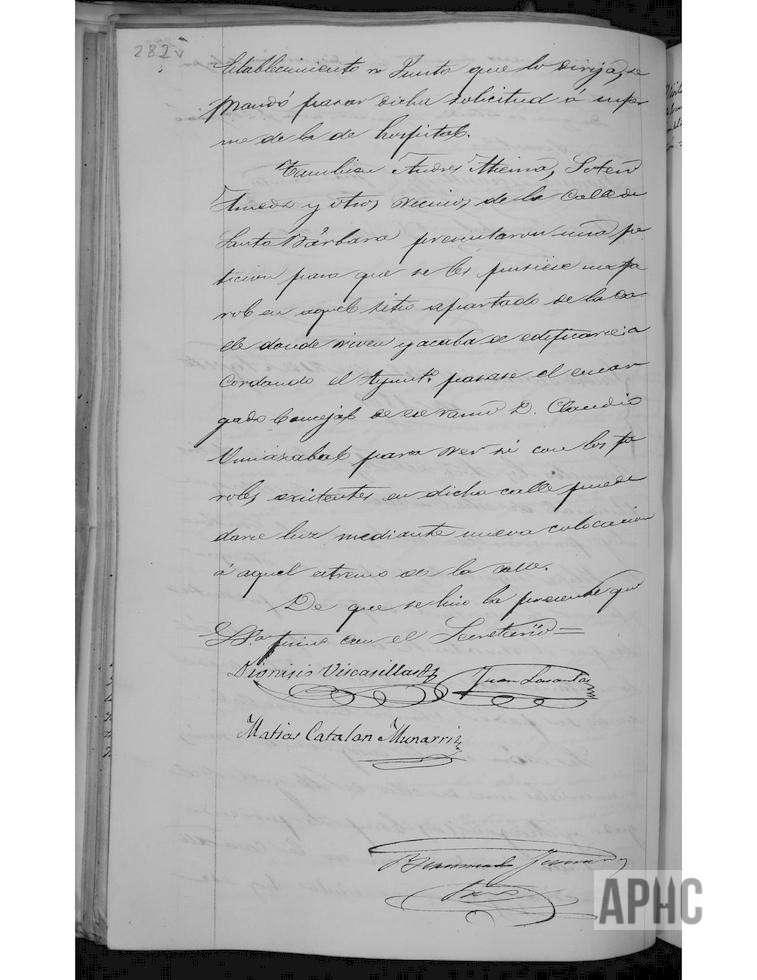 282v
Establecimiento o Junta que lo dirija, se
mandó pasar dicha solicitud á infor
me de la de hospital.
Tambien Andrés y otros vecinos de la Calle de
Santa Bárbara presentaron una pe
ticion para que se les pusiese un fa
rol en aquel sitio apartado de la ca
lle donde viven y acaba de edificarse; a
cordando el Ayunt.º pasase el encar
gado Concejal de ese ramo D. Claudio
para ver si con los fa
roles existentes en dicha calle puede
darse luz mediante nueva colocacion
á aquel estremo de la calle.
De que se hizo la presente que
S.S.ª firma con el Secretario=
Dionisio Viscasillas Juan Lasantas
Matias Catalan Munarriz
APHC